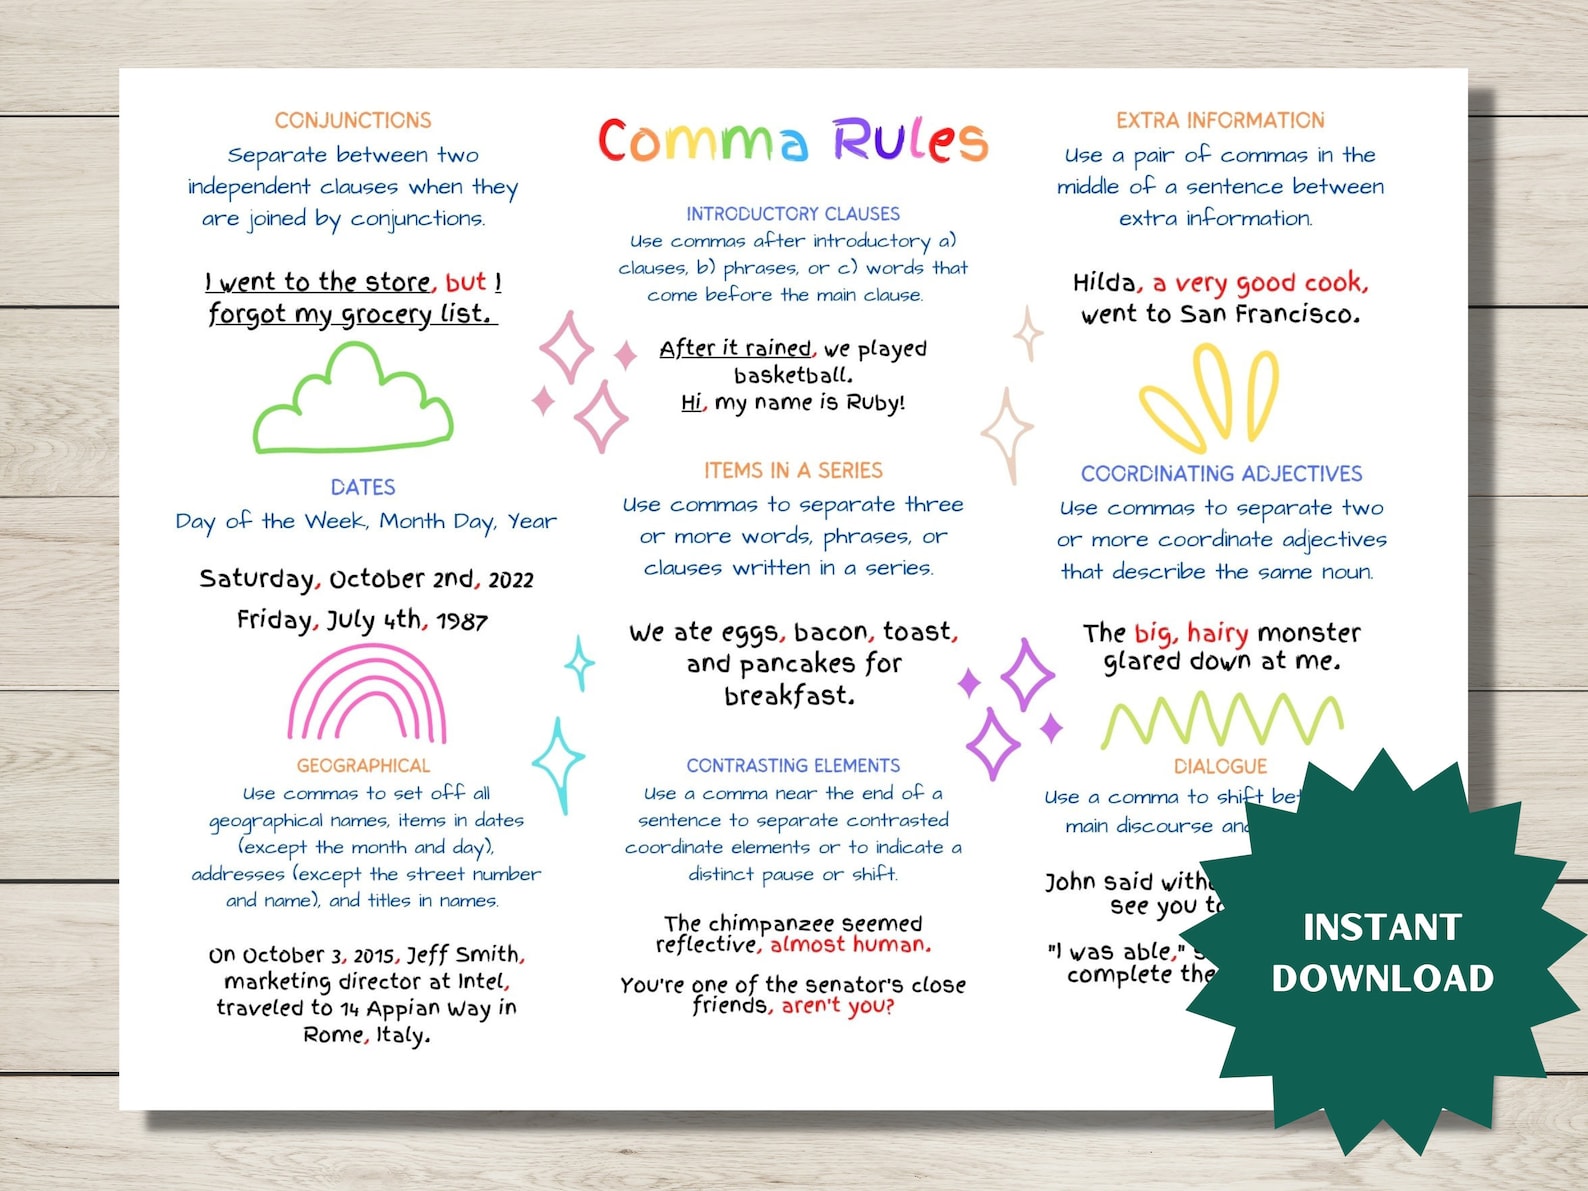 Comma Rules
CONJUNCTIONS
Separate between two
independent clauses when they
are joined by conjunctions.
I went to the store, but I
forgot my grocery list.
DATES
Day of the Week, Month Day, Year
Saturday, October 2nd, 2022
Friday, July 4th, 1987
GEOGRAPHICAL
Use commas to set off all
geographical names, items in dates
(except the month and day),
addresses (except the street number
and name), and titles in names.
On October 3, 2015, Jeff Smith,
marketing director at Intel,
traveled to 14 Appian Way in
Rome, Italy.
INTRODUCTORY CLAUSES
Use commas after introductory a)
clauses, b) phrases, or c) words that
come before the main clause.
After it rained, we played
basketball.
Hi, my name is Ruby!
ITEMS IN A SERIES
Use commas to separate three
or more words, phrases, or
clauses written in a series.
We ate eggs, bacon, toast,
and pancakes for
breakfast.
CONTRASTING ELEMENTS
Use a comma near the end of a
sentence to separate contrasted
coordinate elements or to indicate a
distinct pause or shift.
The chimpanzee seemed
reflective, almost human.
You're one of the senator's close
friends, aren't you?
EXTRA INFORMATION
Use a pair of commas in the
middle of a sentence between
extra information.
Hilda, a very good cook,
went to San Francisco.
COORDINATING ADJECTIVES
Use commas to separate two
or more coordinate adjectives
that describe the same noun.
The big, hairy monster
glared down at me.
DIALOGUE
Use a comma to shift
main discourse
John said
see you
"I was able,"
complete the
INSTANT
DOWNLOAD